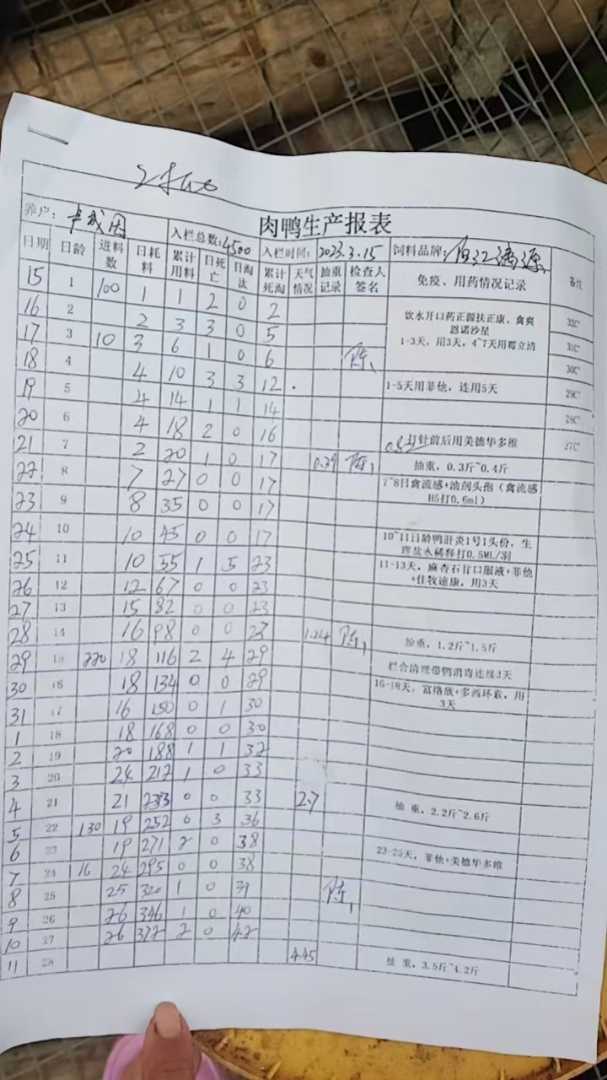 肉鸭生产报表
养户: 入栏总数:4500 入栏时间: 2023.3.15 饲料品牌:
日期 日龄 进料数 日耗料 累计用料 日死亡 日淘汰 累计死淘 天气情况 抽重记录 检查人签名 免疫、用药情况记录 备注
15 1 100 1 1 2 0 2 饮水开口药正源扶正康、禽爽 32C
恩诺沙星
16 2 2 3 3 0 5 1-3天,用3天,4~7天用霉立清 31C
17 3 10 3 6 1 0 6 陈 30C
18 4 4 10 3 3 12 1-5天用菲他,连用5天 29C
19 5 4 14 1 1 14 28C
20 6 4 18 2 0 16 打针前后用美德华多维 27C
21 7 2 20 1 0 17 陈 抽重,0.3斤~0.4斤
22 8 7 27 0 0 17 7~8日禽流感+油剂头孢(禽流感
H5打0.6ml)
23 9 8 35 0 0 17
24 10 10 45 0 0 17 10~11日龄鸭肝炎1号1头份,生
理盐水稀释打0.5ML/羽
25 11 10 55 1 5 23 11-13天,麻杏石甘口服液+菲他
+佳牧速康,用3天
26 12 12 67 0 0 23
27 13 15 82 0 0 23
28 14 16 98 0 0 23 陈 抽重,1.2斤~1.5斤
29 15 220 18 116 2 4 29 栏合清理带鸭消毒连续3天
30 16 18 134 0 0 29 16-18天,富络欣+多西环素,用
3天
31 17 16 150 0 1 30
1 18 18 168 0 0 30
2 19 20 188 1 1 32
3 20 24 212 1 0 33
4 21 21 233 0 0 33 2.7 抽重,2.2斤~2.6斤
5 22 130 19 252 0 3 36
6 23 19 271 2 0 38 23-25天,菲他+美德华多维
7 24 116 24 295 0 0 38
8 25 25 320 1 0 39 陈
9 26 26 346 1 0 40
10 27 26 372 2 0 42
11 28 4.45 抽重,3.5斤~4.2斤